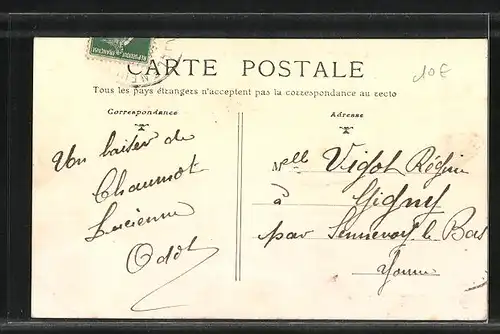 RÉPUBLIQUE FRANÇAISE
CARTE POSTALE
10€
Tous les pays étrangers n'acceptent pas la correspondance au recto
Correspondance
Un baiser de
Chaumot
Lucienne
Odot
Adresse
Melle Vigot Régine
à Gigny
par Sennevoy le Bas
Yonne